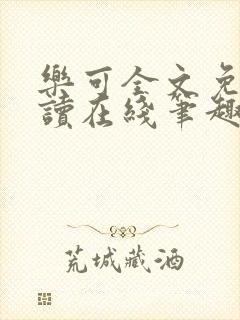 樂可全文免
讀在綫筆趣
荒城藏酒